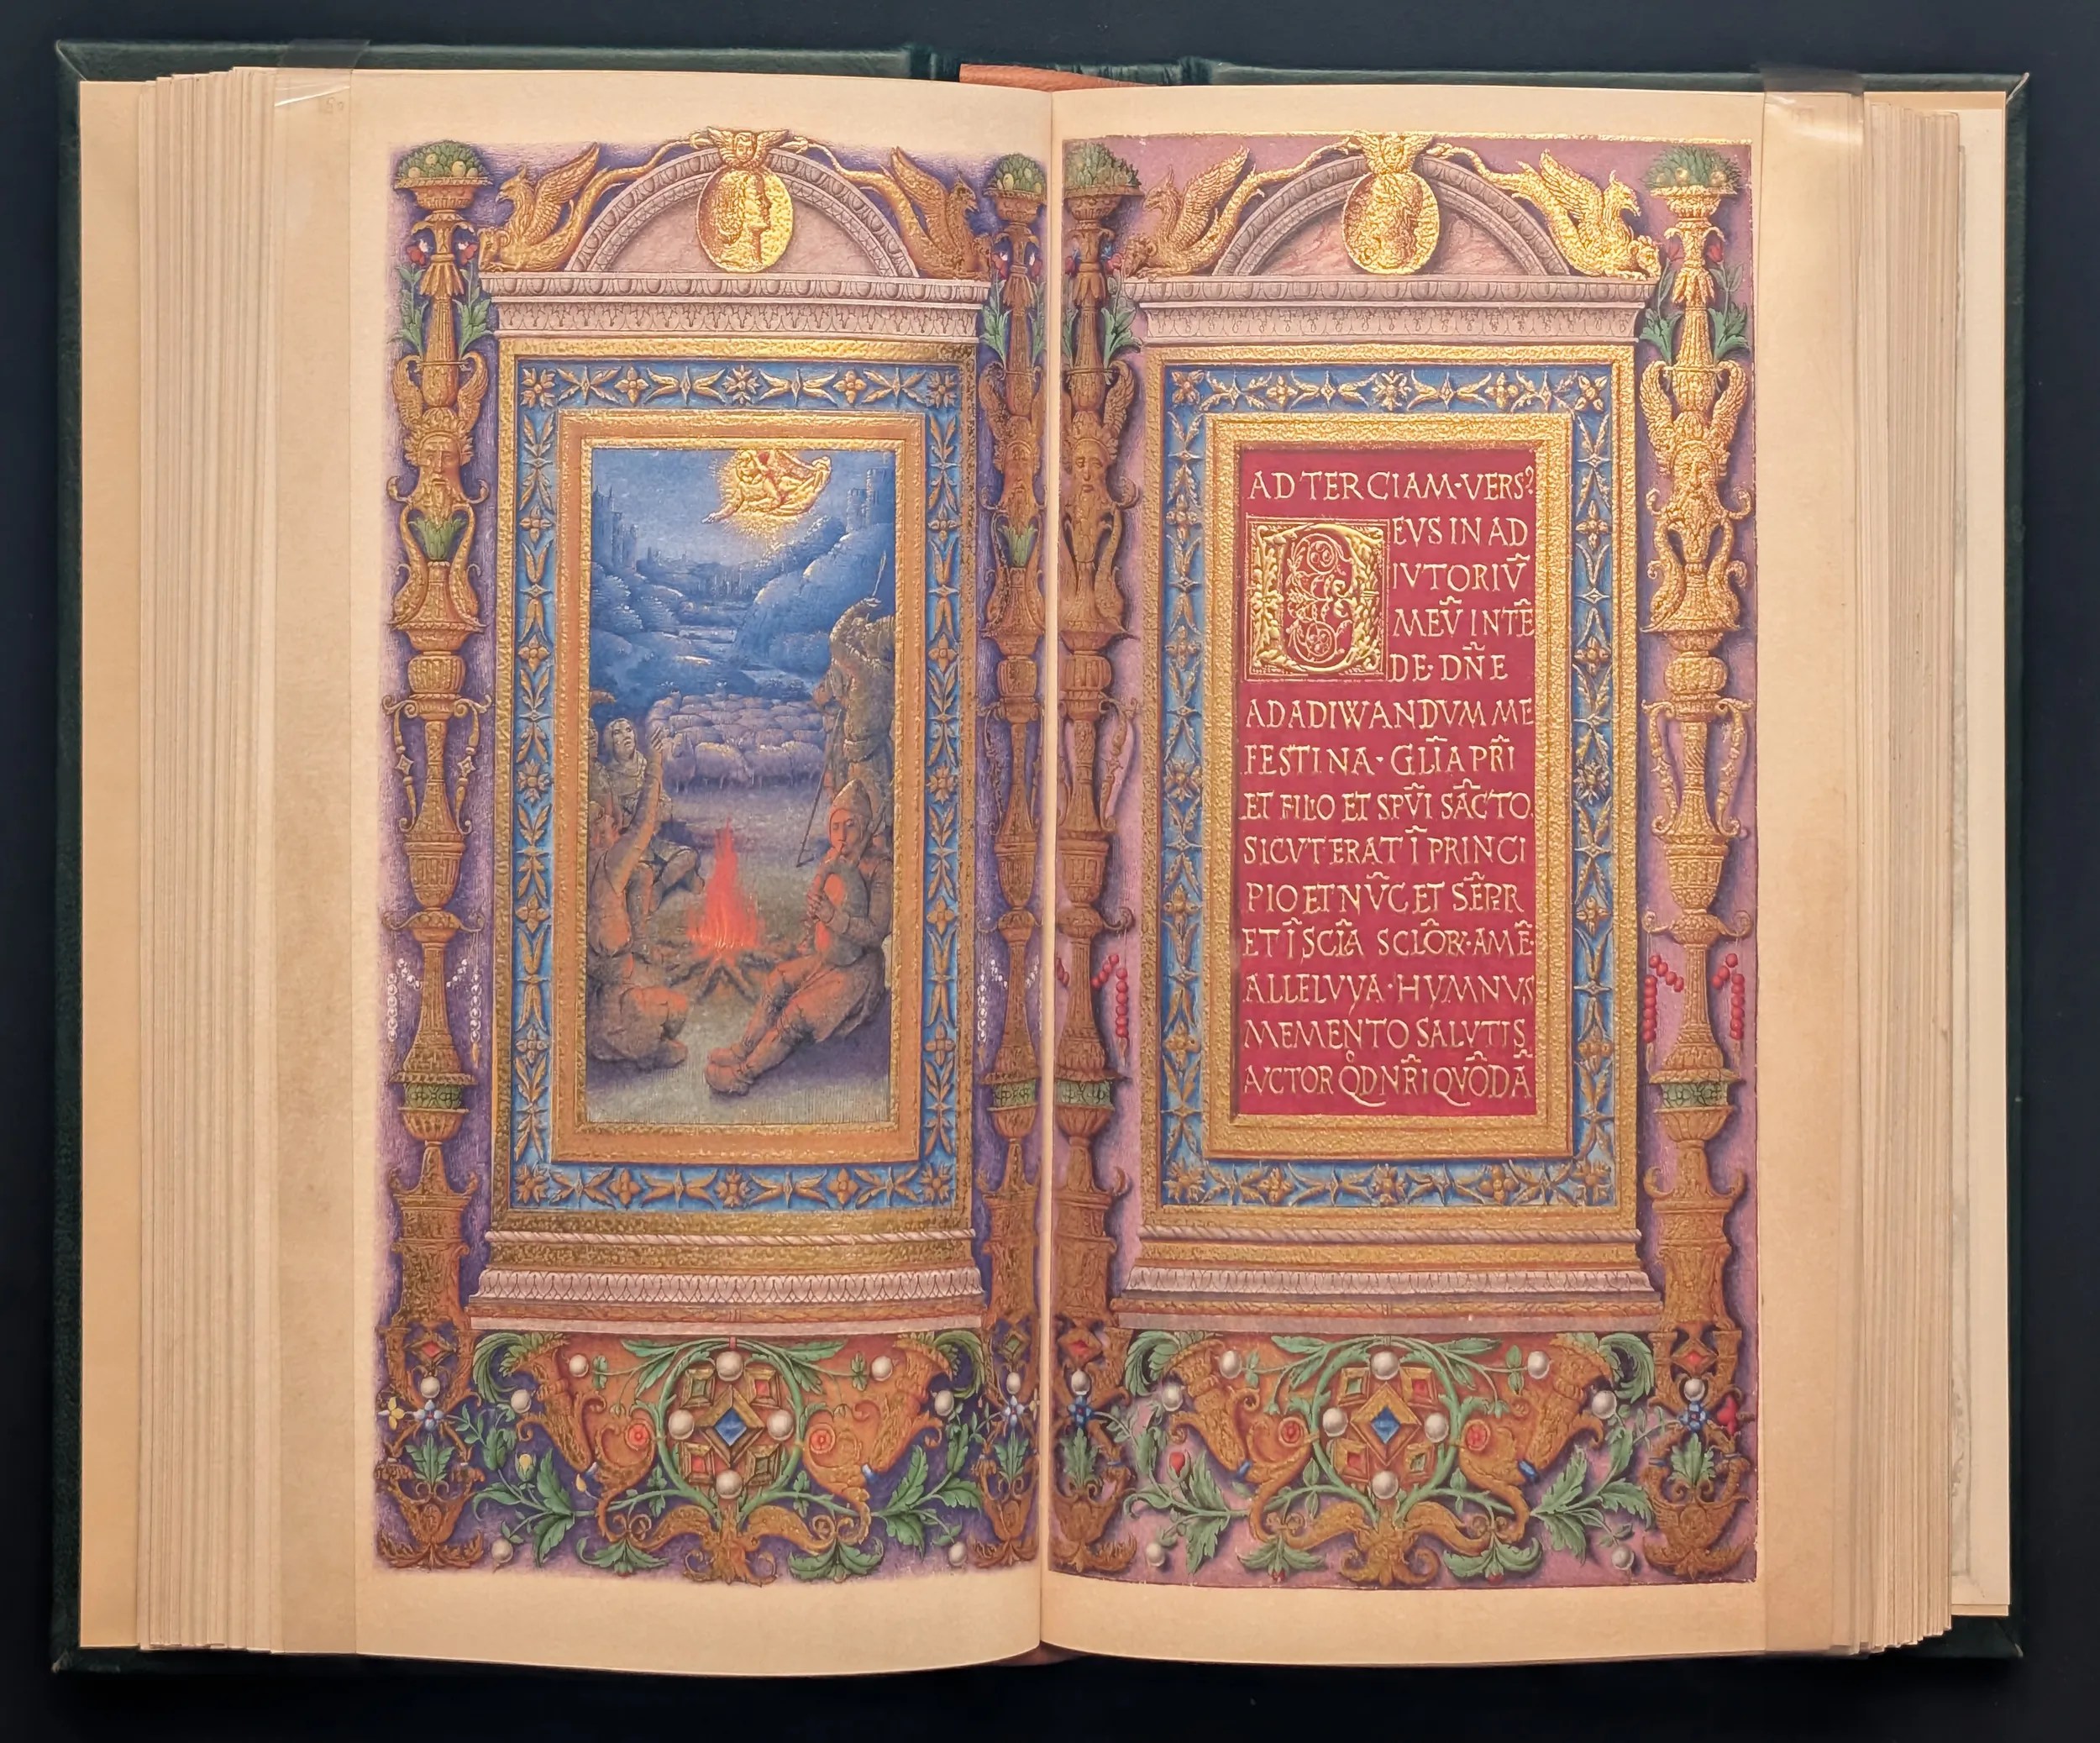 AD TERCIAM·VERS?
DEVS IN AD
IVTORIV̄
MEV̄ INTĒ
DE· DÑE
AD ADIWANDVM ME
FESTINA· GL̄IA PR̄I
ET FILIO ET SPV̄I SĀCTO.
SICVT ERAT Ī PRINCI
PIO ET NV̄C ET SĒPER
ET Ī SCL̄A SCLŌR·AMĒ·
ALLELVYA·HYMNVS
MEMENTO SALVTIS
AVCTOR QͦD NR̄I QVŌDĀ